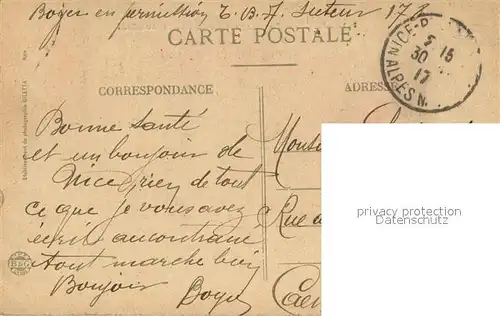 Boyer en permission T. B. 7. Secteur 173
CARTE POSTALE
NICE-P
5 15
30
17
ALPES M.
CORRESPONDANCE
ADRES
Bonne santé
et un bonjour de
Nice rien de tout
ce que je vous avez
écrit au contraire
tout marche bien
Bonjour Boyer
Monsi
Rue
Cae
privacy protection
Datenschutz
B&G